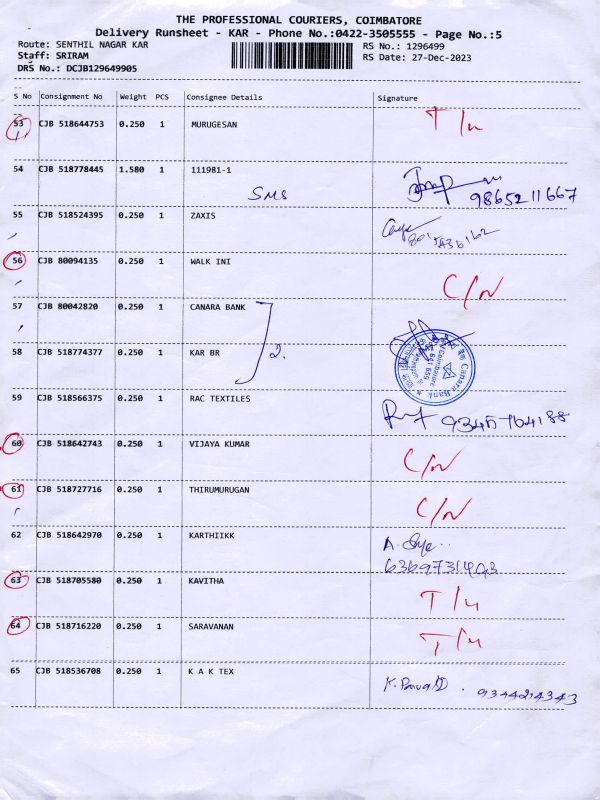 THE PROFESSIONAL COURIERS, COIMBATORE
Delivery Runsheet - KAR - Phone No.:0422-3505555 - Page No.:5
Route: SENTHIL NAGAR KAR RS No.: 1296499
Staff: SRIRAM RS Date: 27-Dec-2023
DRS No.: DCJB129649905
S No Consignment No Weight PCS Consignee Details Signature
53 CJB 518644753 0.250 1 MURUGESAN T/u
54 CJB 518778445 1.580 1 111981-1
SMS 9865211667
55 CJB 518524395 0.250 1 ZAXIS
56 CJB 80094135 0.250 1 WALK INI C/N
57 CJB 80042820 0.250 1 CANARA BANK
58 CJB 518774377 0.250 1 KAR BR 2. Canara Bank Coimbatore
59 CJB 518566375 0.250 1 RAC TEXTILES 9345764188
60 CJB 518642743 0.250 1 VIJAYA KUMAR C/N
61 CJB 518727716 0.250 1 THIRUMURUGAN C/N
62 CJB 518642970 0.250 1 KARTHIIKK
6369731403
63 CJB 518705580 0.250 1 KAVITHA T/u
64 CJB 518716220 0.250 1 SARAVANAN T/u
65 CJB 518536708 0.250 1 K A K TEX 9344214343